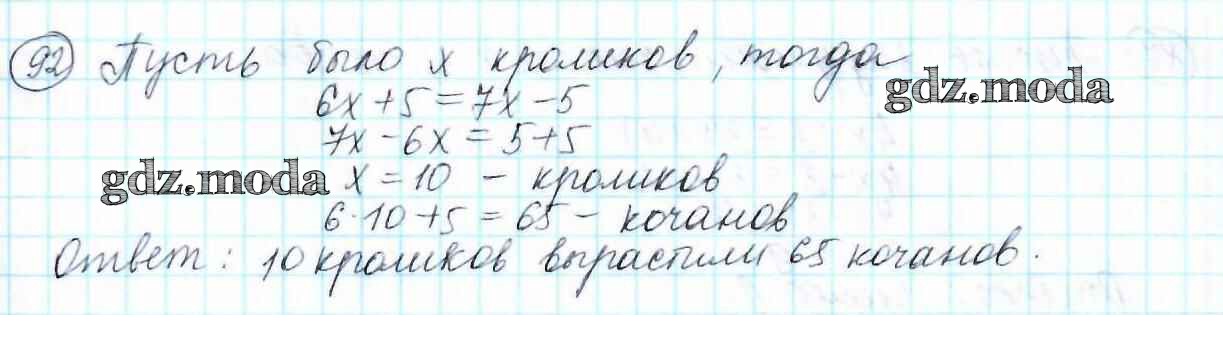 92 Пусть было x кроликов, тогда
6x + 5 = 7x - 5
gdz.moda
7x - 6x = 5 + 5
gdz.moda x = 10 - кроликов
6·10 + 5 = 65 - кочанов
Ответ: 10 кроликов вырастили 65 кочанов.